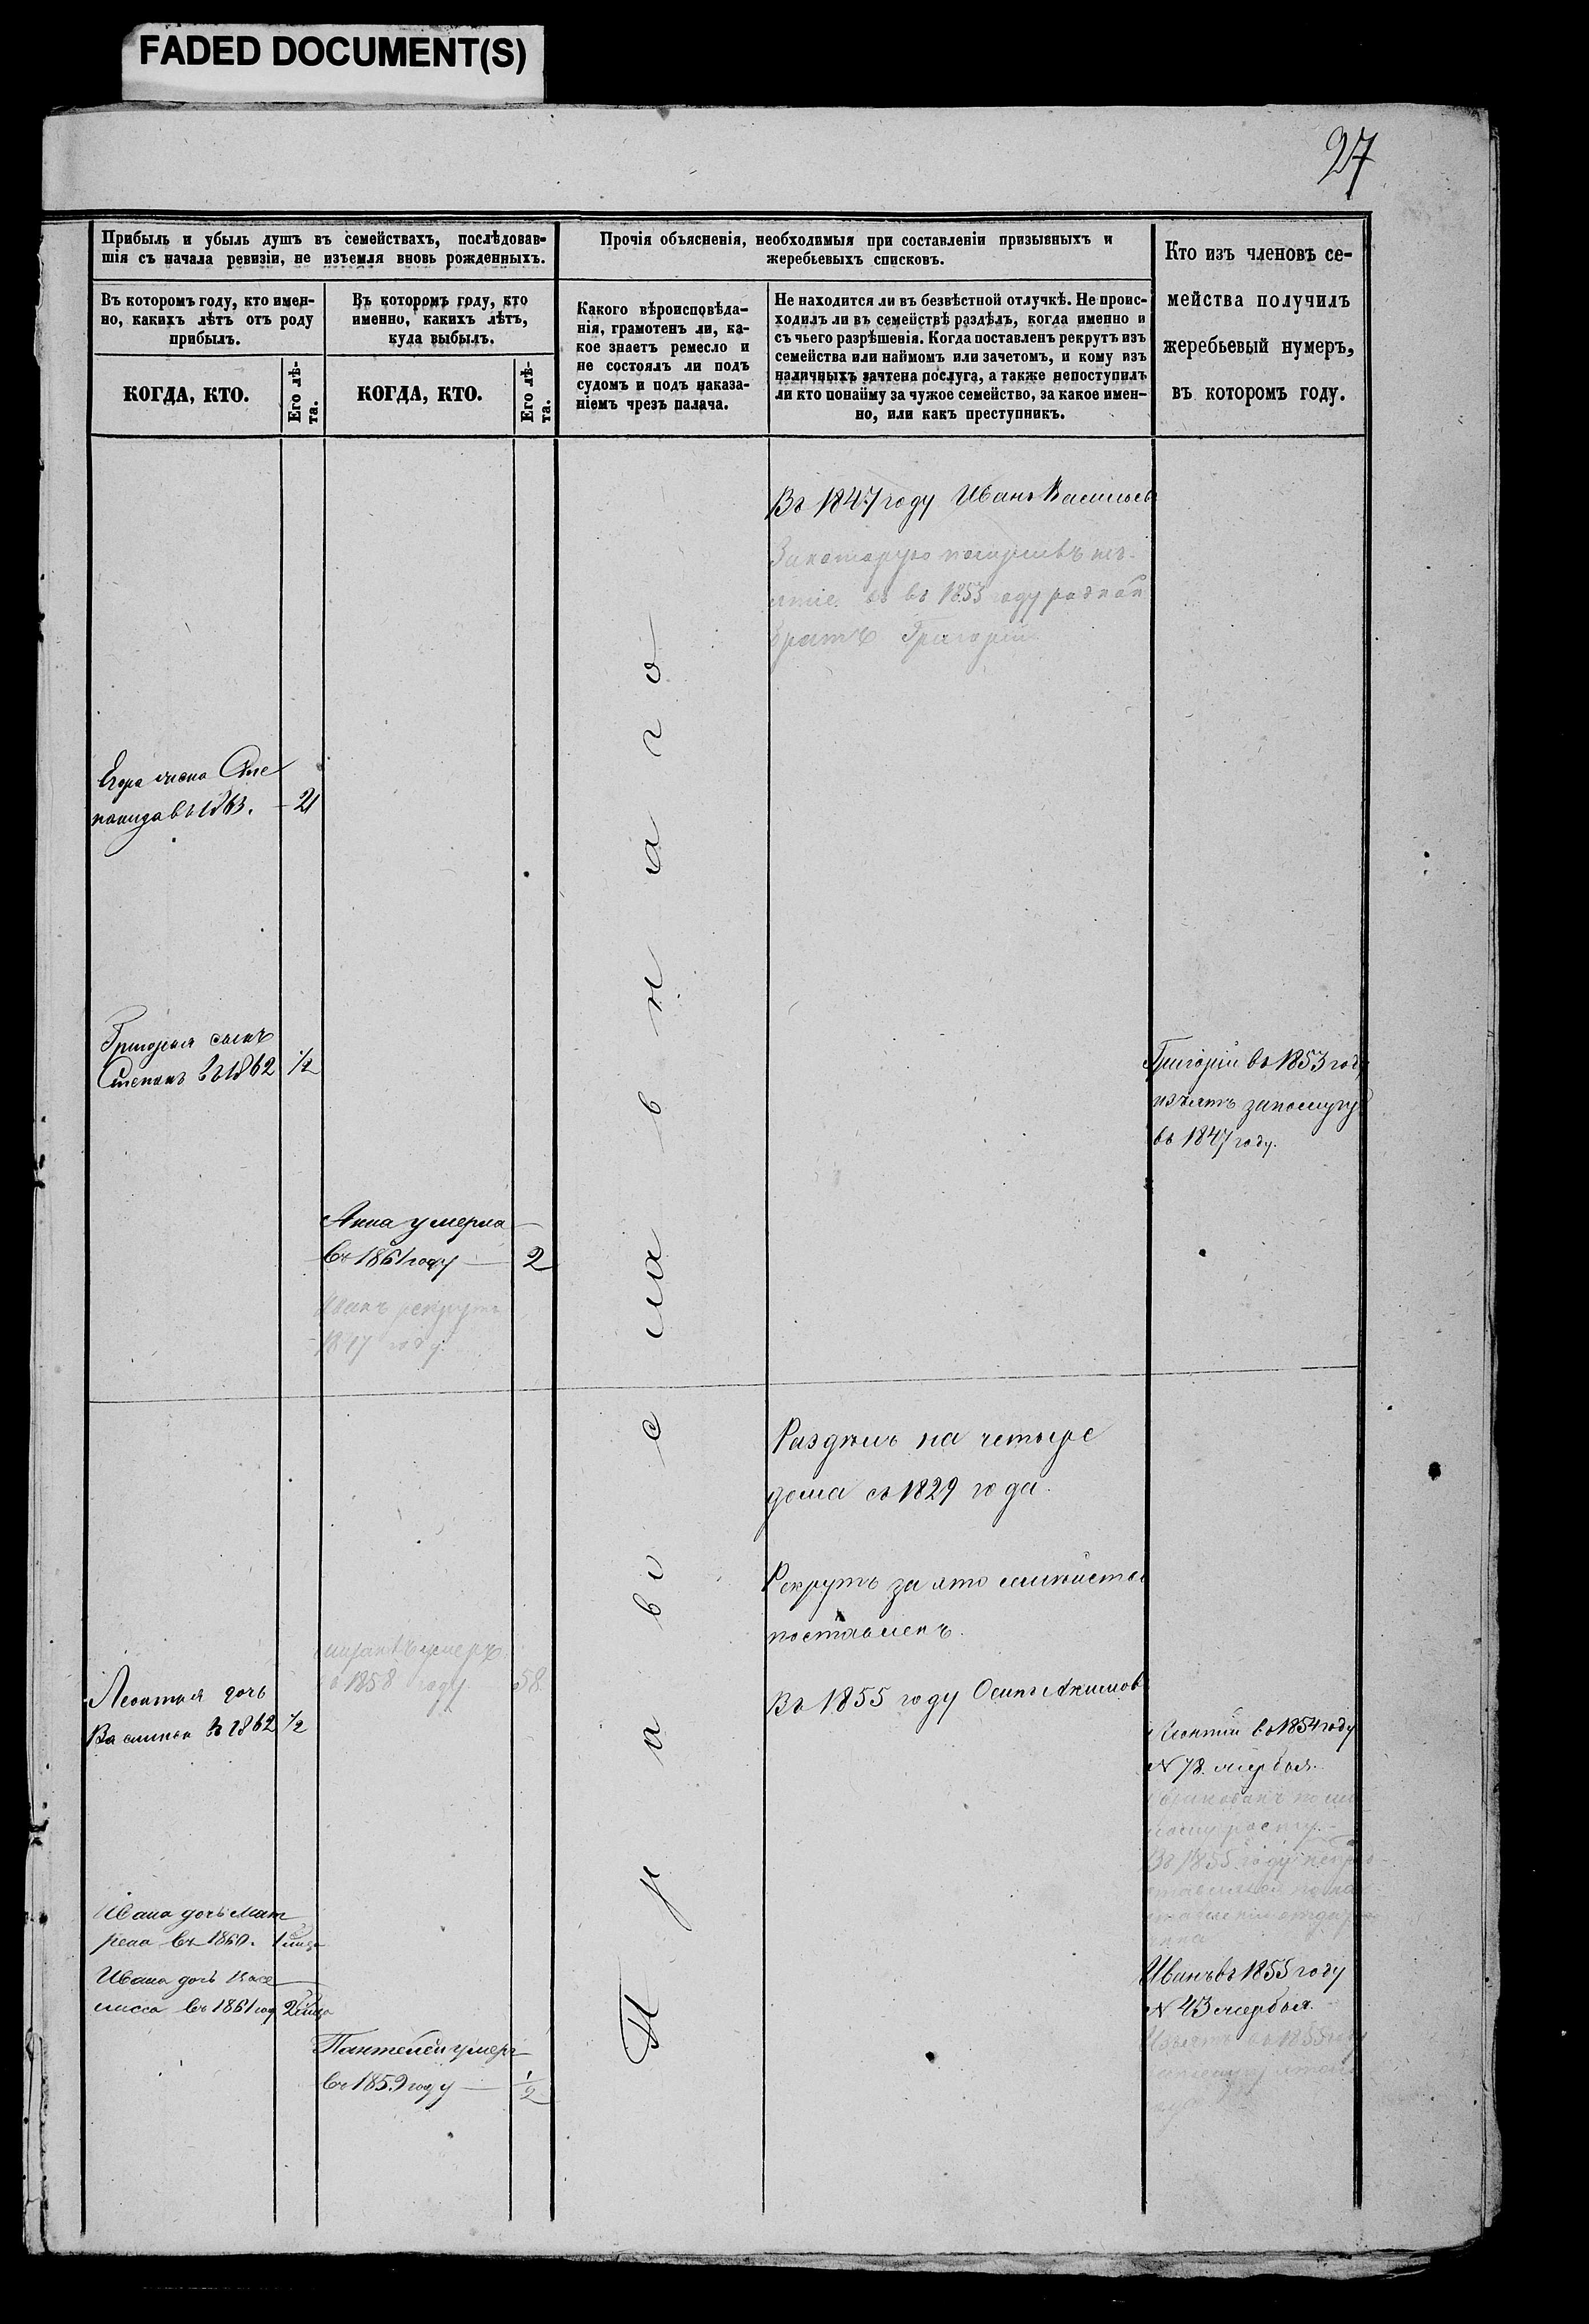 FADED DOCUMENT(S)
27
Прибыль и убыль душъ въ семействахъ, послѣдовав-
шія съ начала ревизіи, не изъемля вновь рожденныхъ.
Въ которомъ году, кто имен-
но, какихъ лѣтъ отъ роду
прибылъ.
КОГДА, КТО.
Его лѣ-
та.
Въ которомъ году, кто
именно, какихъ лѣтъ,
куда выбылъ.
КОГДА, КТО.
Его лѣ-
та.
Прочія объясненія, необходимыя при составленіи призывныхъ и
жеребьевыхъ списковъ.
Какого вѣроисповѣда-
нія, грамотенъ ли, ка-
кое знаетъ ремесло и
не состоялъ ли подъ
судомъ и подъ наказа-
ніемъ чрезъ палача.
Не находится ли въ безвѣстной отлучкѣ. Не проис-
ходилъ ли въ семействѣ раздѣлъ, когда именно и
съ чьего разрѣшенія. Когда поставленъ рекрутъ изъ
семейства или наймомъ или зачетомъ, и кому изъ
наличныхъ зачтена послуга, а также непоступилъ
ли кто понайму за чужое семейство, за какое имен-
но, или какъ преступникъ.
Кто изъ членовъ се-
мейства получилъ
жеребьевый нумеръ,
въ которомъ году.
Въ 1847 году Иванъ Васильевъ
въ 1853 году родной
братъ Григорій
Егора жена Сте
понида въ 1863. 21
Григорья сынъ
Степанъ въ 1862 1/2
Григорій въ 1853 году
изъятъ запослугу
въ 1847 году.
Анна умерла
въ 1861 году 2
Иванъ рекрутъ
1847 году.
Православнаго
Раздѣлъ на четыре
дома съ 1829 года.
Рекрутъ за это семейство
поставленъ.
Въ 1855 году Осипъ Акимовъ
умеръ
въ 1858 году 58
Леонтья дочь
Василиса въ 1862 1/2
Леонтій въ 1854 году
№ 78. жербья.
росту.
Въ 1855 году
Ивана дочь Мат
рена въ 1860. 1
Ивана дочь Васи
лисса въ 1861 год 2
Иванъ въ 1855 году
№ 43 жербья.
Изъятъ въ 1855 году
Пантелей умеръ
въ 1859 году 1/2